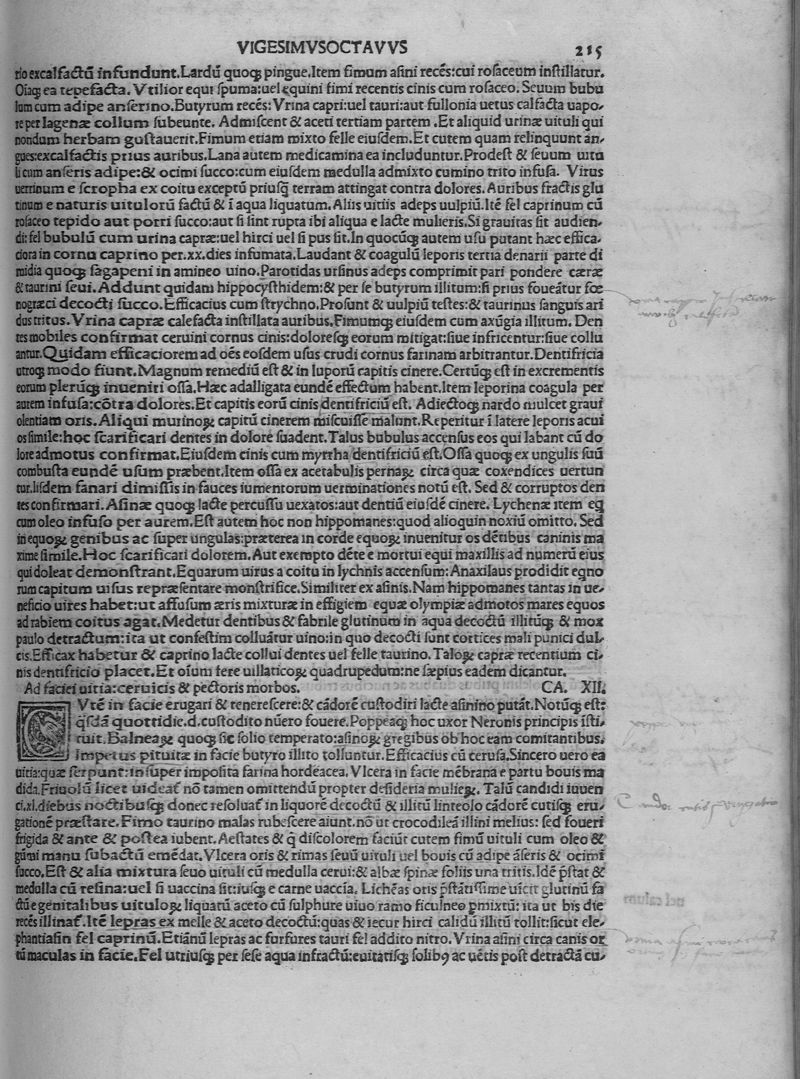 VIGESIMVSOCTAVVS 215
rio excalfactū infundunt.Lardū quoqꝫ pingue.Item fimum asini recēs:cui rosaceum instillatur.
Oiaqꝫ ea tepefacta.Vtilior equi spuma:uel equini fimi recentis cinis cum rosaceo.Seuum bubu
lum cum adipe anserino.Butyrum recēs:Vrina capri:uel tauri:aut fullonia uetus calfacta uapo-
re per lagenæ collum subeunte. Admiscent & aceti tertiam partem .Et aliquid urinæ uituli qui
nondum herbam gustauerit.Fimum etiam mixto felle eiusdem.Et cutem quam relinquunt an-
gues:excalfactis prius auribus.Lana autem medicamina ea includuntur.Prodest & seuum uitu
li cum anseris adipe:& ocimi succo:cum eiusdem medulla admixto cumino trito infusa. Virus
uerrinum e scropha ex coitu exceptū priusꝗ terram attingat contra dolores.Auribus fractis glu
tinum e naturis uitulorū factū & ī aqua liquatum.Aliis uitiis adeps uulpiū.Itē fel caprinum cū
rosaceo tepido aut porri succo:aut si sint rupta ibi aliqua e lacte mulieris.Si grauitas sit audien-
di:fel bubulū cum urina capræ:uel hirci uel si pus sit.In quocūqꝫ autem usu putant hæc effica-
ciora in cornu caprino per.xx.dies infumata.Laudant & coagulū leporis tertia denarii parte di
midia quoqꝫ sagapeni in amineo uino.Parotidas ursinus adeps comprimit pari pondere cæræ
& taurini seui.Addunt quidam hippocysthidem:& per se butyrum illitum:si prius foueātur fœ
nogræci decocti succo.Efficacius cum strychno.Prosunt & uulpiū testes:& taurinus sanguis ari
dus tritus.Vrina capræ calefacta instillata auribus.Fimumqꝫ eiusdem cum axūgia illitum. Den
tes mobiles confirmat ceruini cornus cinis:doloresqꝫ eorum mitigat:siue infricentur:siue collu
antur.Quidam efficaciorem ad oēs eosdem usus crudi cornus farinam arbitrantur.Dentifricia
utroqꝫ modo fiunt.Magnum remediū est & in luporū capitis cinere.Certūqꝫ est in excrementis
eorum plerūqꝫ inueniri ossa.Hæc adalligata eundē effectum habent.Item leporina coagula per
aurem infusa:cōtra dolores.Et capitis eorū cinis dentifriciū est. Adiectoqꝫ nardo mulcet graui
olentiam oris.Aliqui murinoꝝ capitū cinerem miscuisse malunt.Reperitur ī latere leporis acui
os simile:hoc scarificari dentes in dolore suadent.Talus bubulus accensus eos qui labant cū do
lore admotus confirmat.Eiusdem cinis cum myrrha dentifriciū est.Ossa quoqꝫ ex ungulis suū
combusta eundē usum præbent.Item ossa ex acetabulis pernaꝝ circa quæ coxendices uertun
tur.Iisdem sanari dimissis in fauces iumentorum uerminationes notū est. Sed & corruptos den
tes confirmari.Asinæ quoqꝫ lacte percussu uexatos:aut dentiū eiusdē cinere. Lychenæ item eq
cum oleo infuso per aurem.Est autem hoc non hippomanes:quod alioquin noxiū omitto. Sed
in equoꝝ genibus ac super ungulas:præterea in corde equoꝝ inuenitur os dētibus caninis ma
xime simile.Hoc scarificari dolorem.Aut exempto dēte e mortui equi maxillis ad numerū eius
qui doleat demonstrant.Equarum uirus a coitu in lychnis accensum:Anaxilaus prodidit eqno
rum capitum uisus repræsentare monstrifice.Similiter ex asinis.Nam hippomanes tantas in ue-
neficio uires habet:ut affusum æris mixturæ in effigiem equæ olympiæ admotos mares equos
ad rabiem coitus agat.Medetur dentibus & fabrile glutinum in aqua decoctū illitūqꝫ & mox
paulo detractum:ita ut confestim colluātur uino:in quo decocti sunt cortices mali punici dul-
cis.Efficax habetur & caprino lacte collui dentes uel felle taurino.Taloꝝ capræ recentium ci-
nis dentifricio placet.Et oīum fere uillaticoꝝ quadrupedum:ne sæpius eadem dicantur.
Ad faciei uitia:ceruicis & pectoris morbos. CA. XII.
CVtē in facie erugari & tenerescere:& cādorē custodiri lacte asinino putāt.Notūqꝫ est:
q̄sdā quottidie.d.custodito nūero fouere.Poppeaqꝫ hoc uxor Neronis principis īsti-
tuit.Balneaꝝ quoqꝫ sic solio temperato:asinoꝝ gregibus ob hoc eam comitantibus.
Impetus pituitæ in facie butyro illito tolluntur.Efficacius cū cerusa.Sincero uero ea
uitia:quæ serpunt:insuper imposita farina hordeacea.Vlcera in facie mēbrana e partu bouis ma
dida.Friuolū licet uideat̄ nō tamen omittendū propter desideria mulieꝝ. Talū candidi iuuen
ci.xl.diebus noctibusqꝫ donec resoluat̄ in liquorē decoctū & illitū linteolo cādorē cutisqꝫ eru-
gationē præstare.Fimo taurino malas rubescere aiunt.nō ut crocodileā illini melius: sed foueri
frigida & ante & postea iubent.Aestates & q̄ discolorem faciūt cutem fimū uituli cum oleo &
gūmi manu subactū emēdat.Vlcera oris & rimas seuū uituli uel bouis cū adipe āseris & ocimi
succo.Est & alia mixtura seuo uituli cū medulla cerui:& albæ spinæ foliis una tritis.Idē p̄stat &
medulla cū resina:uel si uaccina sit:iusqꝫ e carne uaccīa. Lichēas oris p̄stātissime uīcit glutinū fa
ctū e genitalibus uituloꝝ liquatū aceto cū sulphure uiuo ramo ficulneo pmixtū: ita ut bis die
recēs illinat̄.Itē lepras ex melle & aceto decoctū:quas & iecur hirci calidū illitū tollit:sicut ele-
phantiasin fel caprinū.Etiānū lepras ac furfures tauri fel addito nitro.Vrina asini circa canis or
tū maculas in facie.Fel utriusqꝫ per sese aqua infractū:euitatisqꝫ solibꝰ ac uētis post detractā cu-